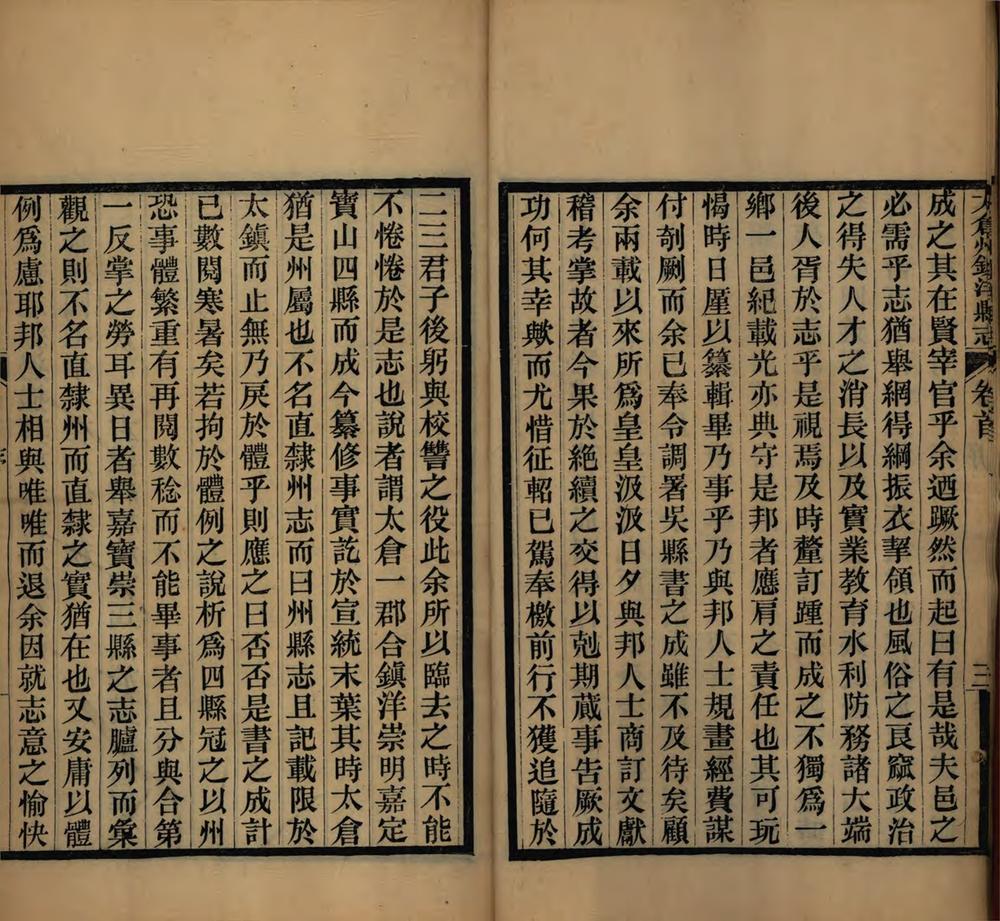 太倉州鎮洋縣志 卷首 三
成之其在賢宰官乎余迺蹶然而起曰有是哉夫邑之
必需乎志猶舉網得綱振衣挈領也風俗之良窳政治
之得失人才之消長以及實業教育水利防務諸大端
後人胥於志乎是視焉及時釐訂踵而成之不獨爲一
鄉一邑紀載光亦典守是邦者應肩之責任也其可玩
愒時日厪以纂輯畢乃事乎乃與邦人士規畫經費謀
付剞劂而余已奉令調署吳縣書之成雖不及待矣顧
余兩載以來所爲皇皇汲汲日夕與邦人士商訂文獻
稽考掌故者今果於絶續之交得以剋期蕆事告厥成
功何其幸歟而尤惜征軺已駕奉檄前行不獲追隨於
二三君子後躬與校讐之役此余所以臨去之時不能
不惓惓於是志也說者謂太倉一郡合鎮洋崇明嘉定
寶山四縣而成今纂修事實訖於宣統末葉其時太倉
猶是州屬也不名直隸州志而曰州縣志且記載限於
太鎮而止無乃戾於體乎則應之曰否否是書之成計
已數閱寒暑矣若拘於體例之說析爲四縣冠之以州
恐事體繁重有再閱數稔而不能畢事者且分與合第
一反掌之勞耳異日者舉嘉寶崇三縣之志臚列而彙
觀之則不名直隸州而直隸之實猶在也又安庸以體
例爲慮耶邦人士相與唯唯而退余因就志意之愉快